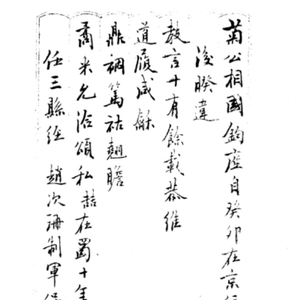 菊公相國鈞座自癸卯在京
後暌違
教言十有餘載恭維
道履咸龢
鼎祺篤祜翹瞻
喬采允洽頌私喆在蜀十年
任三縣經趙次珊制軍保